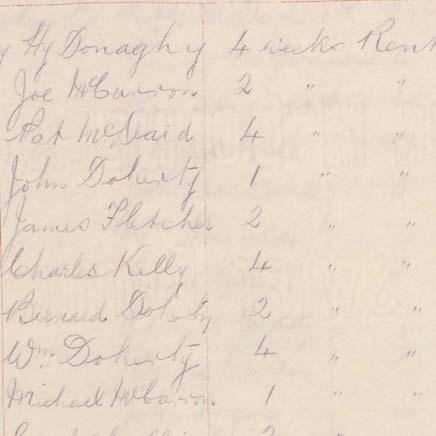 y Hy Donaghy 4 weeks Rent
Joe McCarron 2 " "
Pat McDaid 4 " "
John Doherty 1 " "
James Fletcher 2 " "
Charles Kelly 4 " "
Bernard Doherty 2 " "
Wm Doherty 4 " "
Michael McCarron 1 " "
2 "